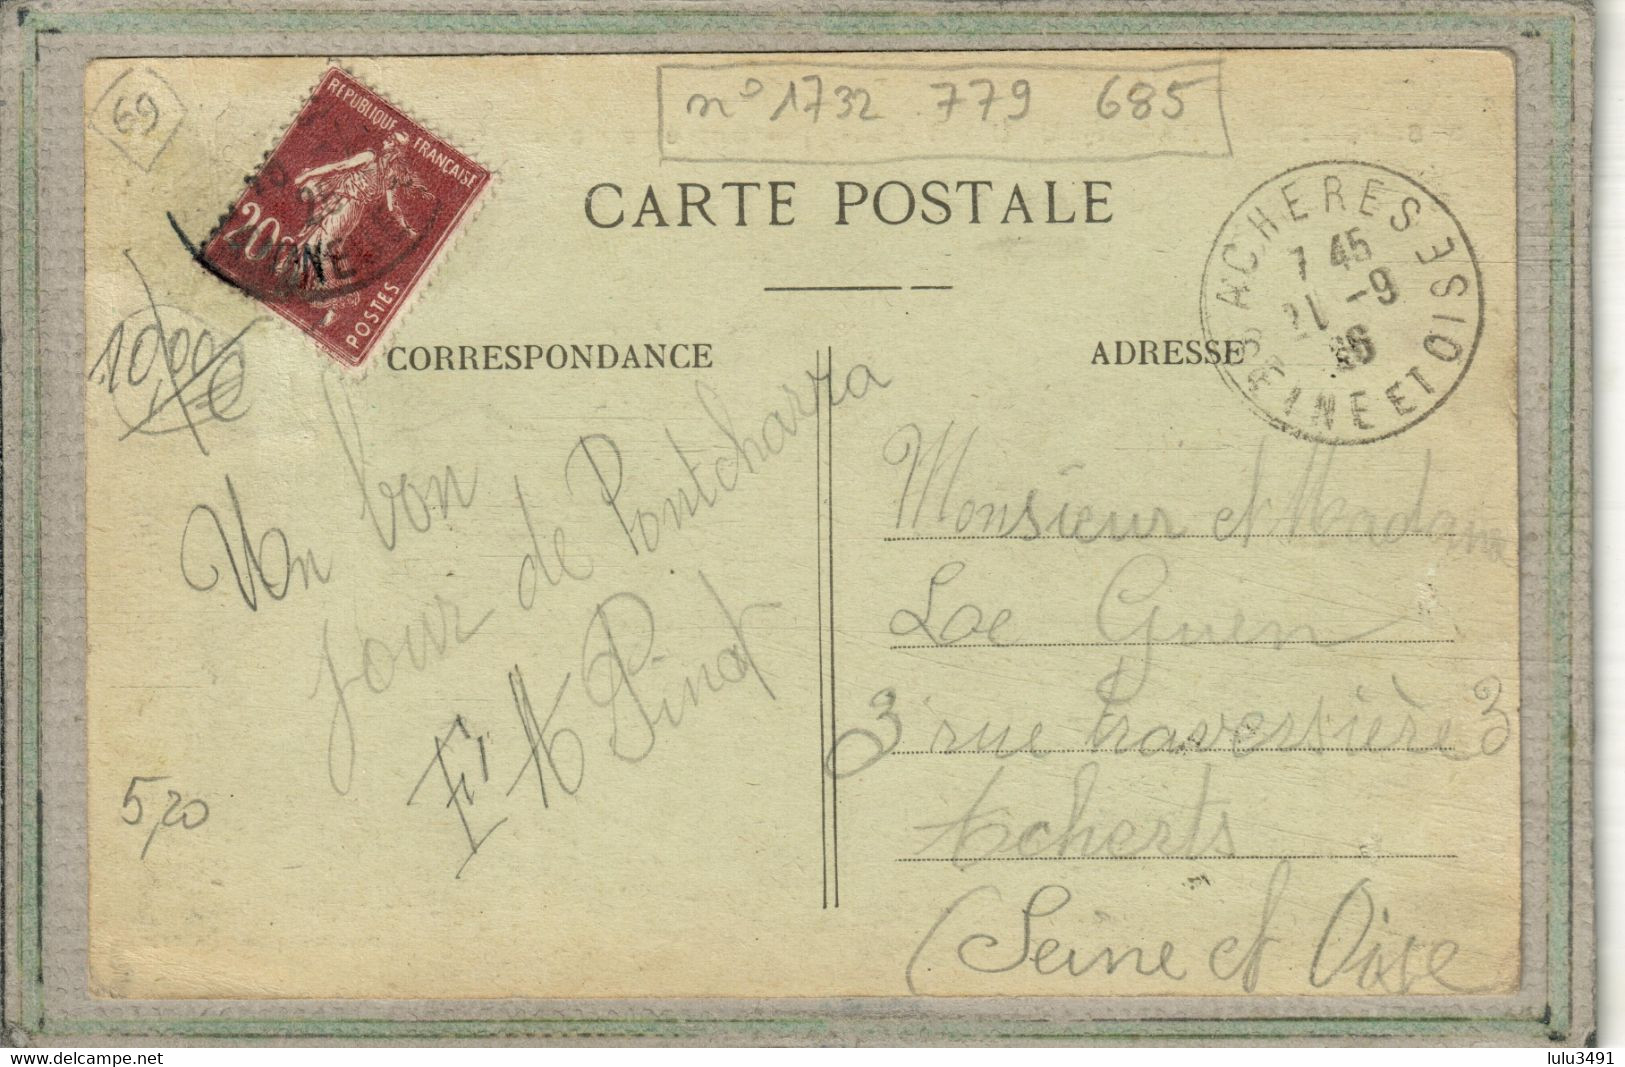 69
n° 1732 779 685
REPUBLIQUE FRANCAISE
20c
POSTES
25
CARTE POSTALE
ACHERES
SEINE ET OISE
7 45
21 -9
1000
CORRESPONDANCE
ADRESSE
Un bon
jour de Pontcharra
Pinat
5,20
Monsieur et Madame
Loe Guen
3 rue traversière 3
Acherts
(Seine et Oise
lulu3491